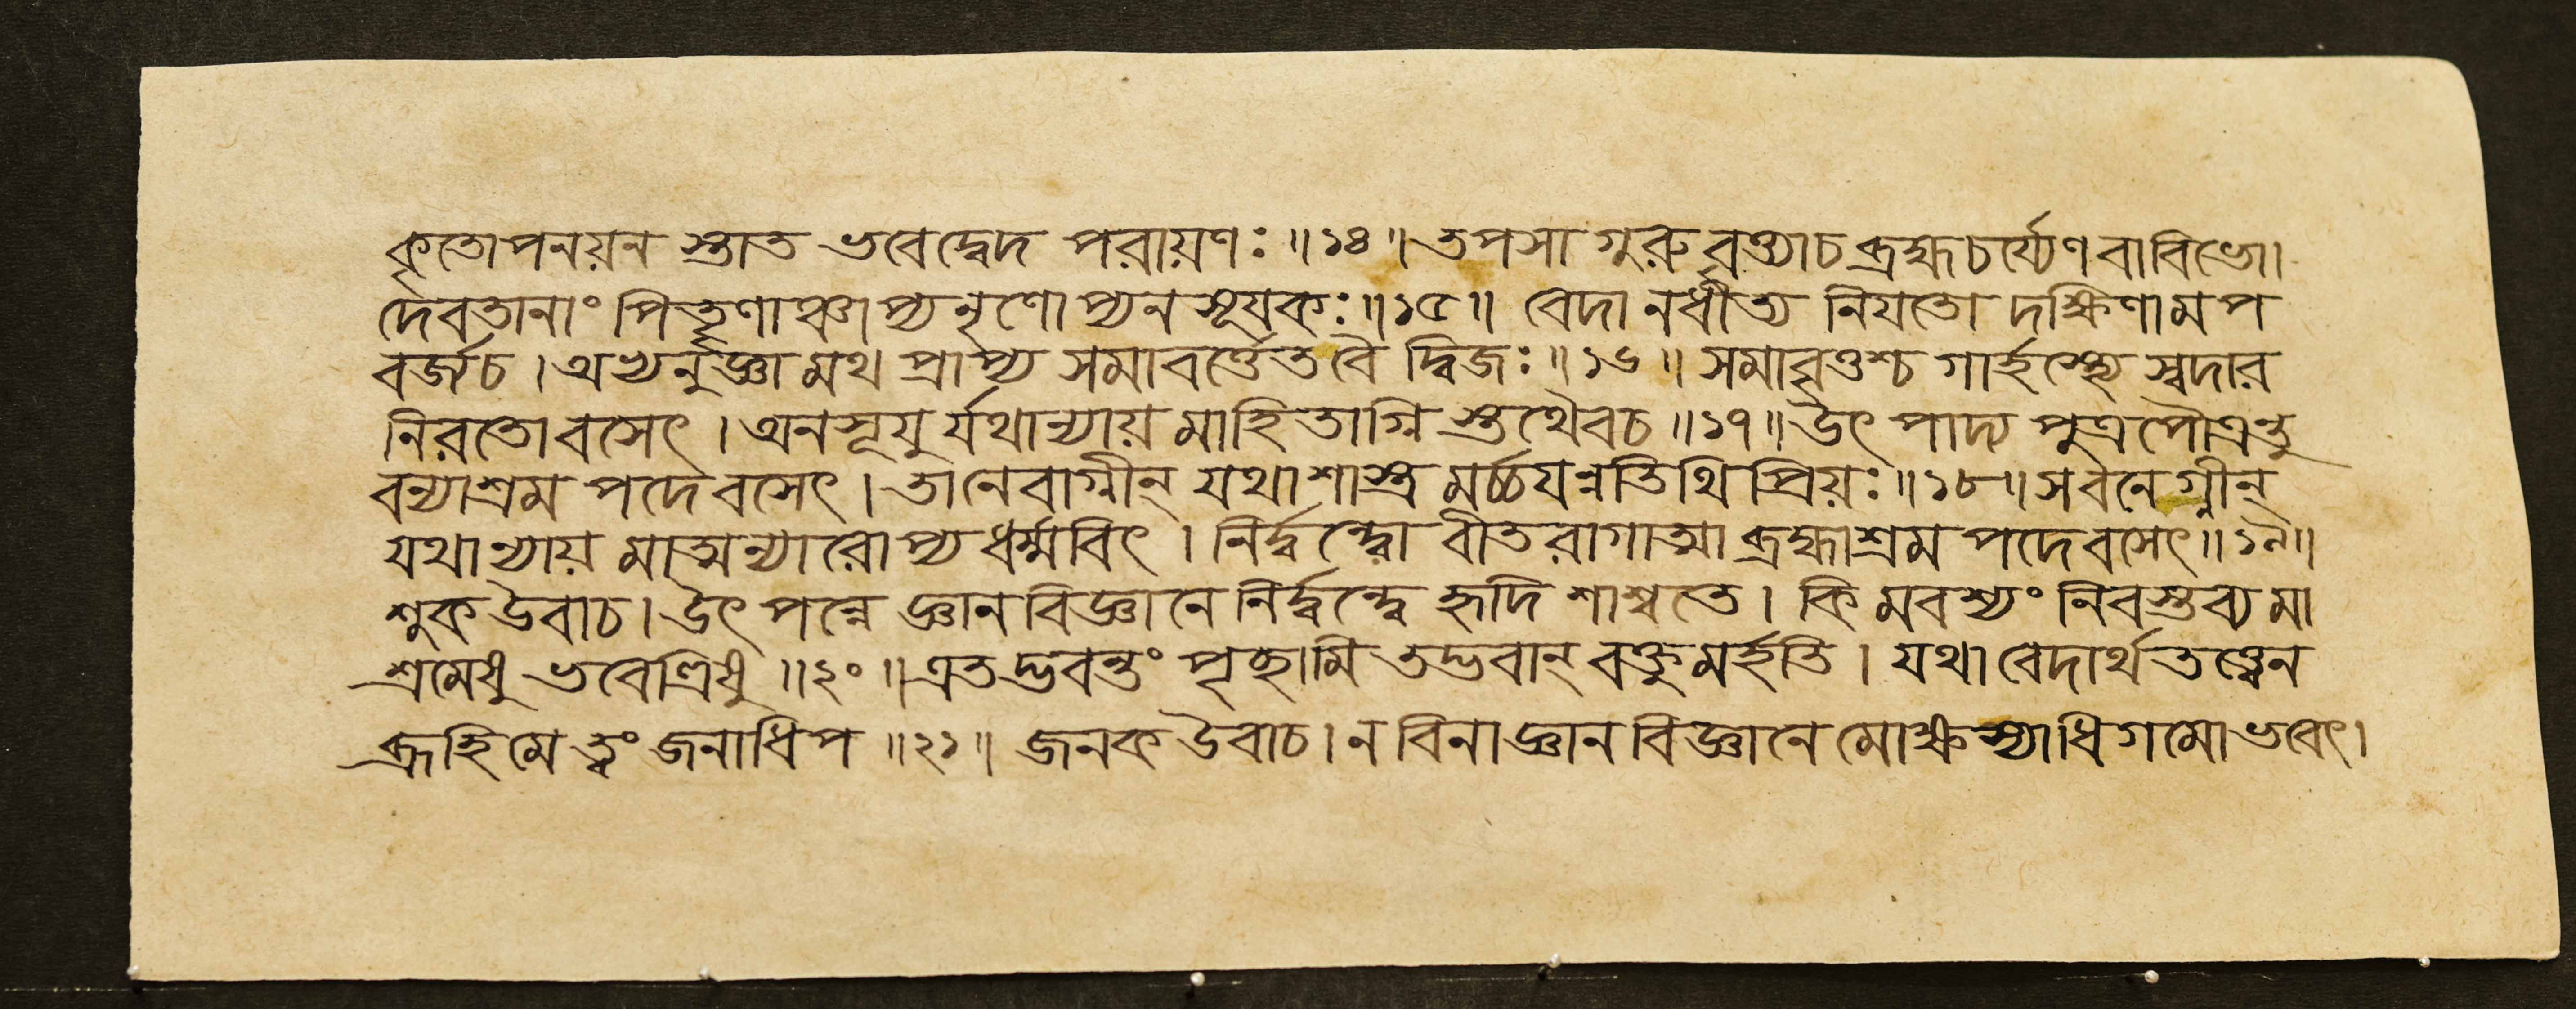 কৃতোপনয়ন স্তাত ভবেদ্বেদ পরায়ণঃ ॥১৪॥ তপসা গুরুবৃত্ত্যাচ ব্রহ্মচর্য্যেণ বাবিভো।
দেবতানাং পিতৄণাঞ্চাপ্যনৃণোপ্যনসূযকঃ ॥১৫॥ বেদানধীত্য নিযতো দক্ষিণামপ
বর্জ্যচ। অভ্যনুজ্ঞামথ প্রাপ্য সমাবর্ত্তেতবৈ দ্বিজঃ ॥১৬॥ সমাবৃত্তশ্চ গার্হস্থ্যে স্বদার
নিরতোবসেৎ। অনসূযুর্যথান্যায়মাহিতাগ্নিস্তথৈবচ ॥১৭॥ উৎপাদ্য পুত্রপৌত্রন্তু
বন্যাশ্রমপদেবসেৎ। তানেবাগ্নীন্ যথাশাস্ত্রমর্চ্চযন্নতিথিপ্রিয়ঃ ॥১৮॥ সবনেগ্নীন্
যথান্যায়মাত্মন্যারোপ্যধর্ম্মবিৎ। নির্দ্বন্দ্বো বীতরাগাত্মা ব্রহ্মাশ্রমপদেবসেৎ ॥১৯॥
শুকউবাচ। উৎপন্নে জ্ঞানবিজ্ঞানে নির্দ্বন্দ্বে হৃদি শাশ্বতে। কিমবশ্যং নিবস্তব্যমা
শ্রমেষু ভবেত্রিষু ॥২০॥ এতদ্ভবন্তং পৃচ্ছামি তদ্ভবান্ বক্তুমর্হতি। যথাবেদার্থতত্ত্বেন
ব্রূহিমে ত্বং জনাধিপ ॥২১॥ জনকউবাচ। ন বিনাজ্ঞানবিজ্ঞানে মোক্ষস্যাধিগমোভবেৎ।